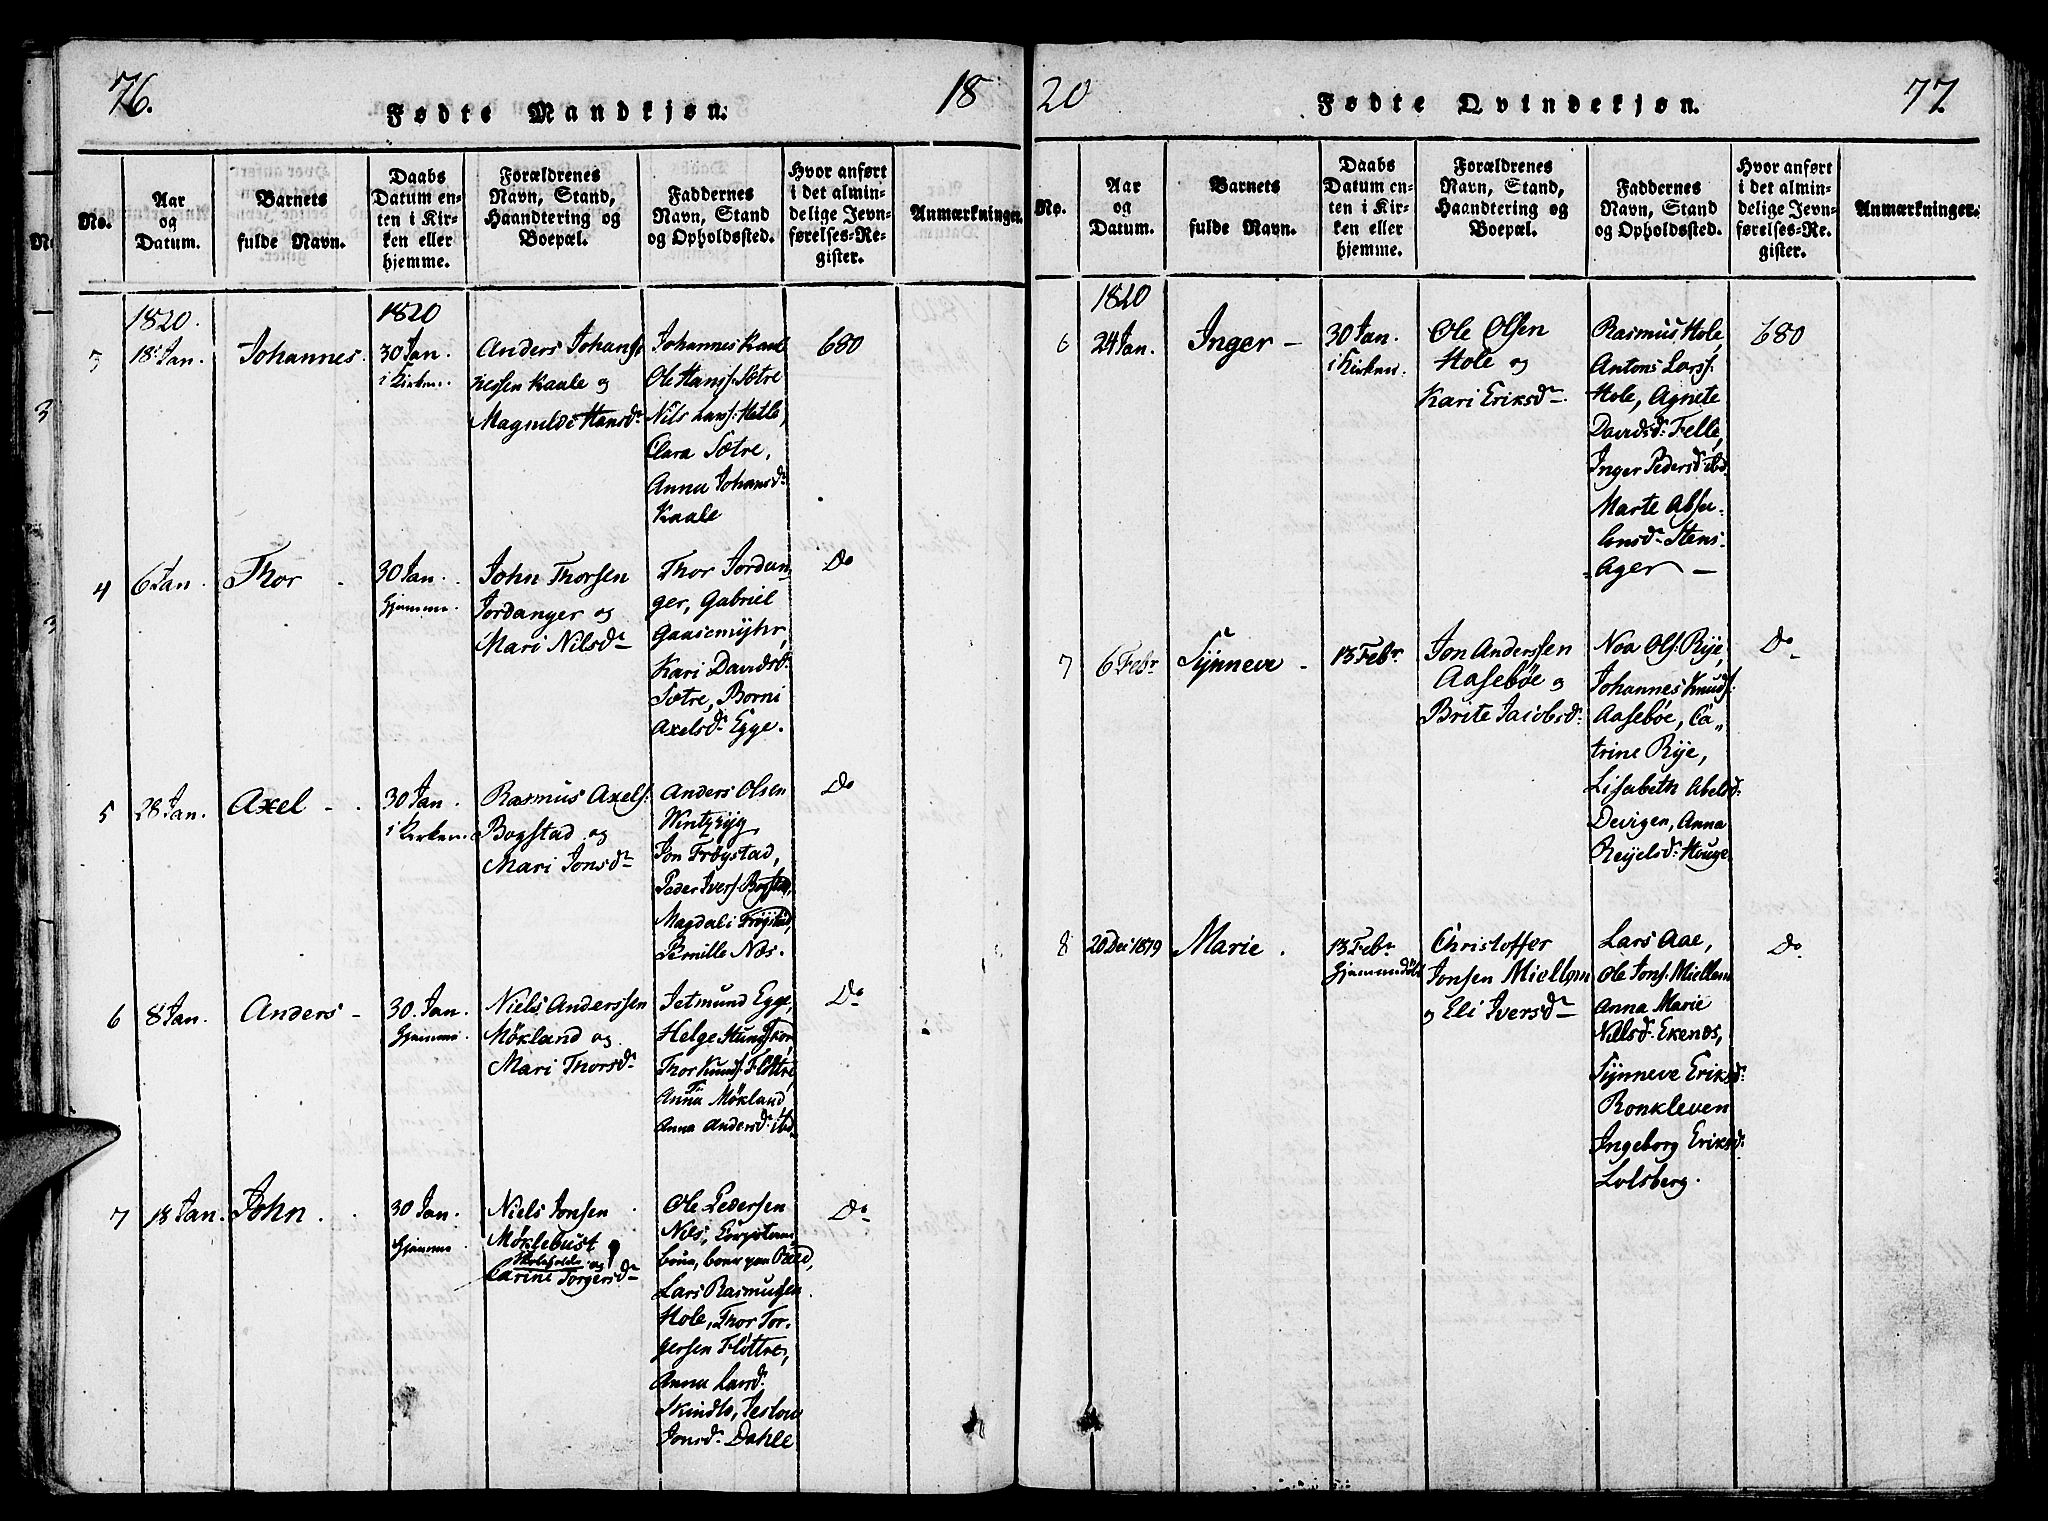 76.
Fødte Mandkjøn.
18
No.
Aar
og
Datum.
Barnets
fulde Navn.
Daabs
Datum en-
ten i Kir-
ken eller
hjemme.
Forældrenes
Navn, Stand,
Haandtering og
Boepæl.
Faddernes
Navn, Stand
og Opholdssted.
Hvor anført
i det almin-
delige Jevn-
førelses-Re-
gister.
Anmærkninger.
1820.
1820
3
18 Jan.
Johannes.
30 Jan.
i Kirken.
Anders Johan-
nessen Kaale og
Magnilde Hansdr
Johannes Kaale
Ole Hanss: Sætre
Nils Larss: Hetle,
Clara Sætre,
Anna Johansdr
Kaale
680
4
6 Jan.
Thor
30 Jan.
Hjemme.
John Thorsen
Jordanger og
Mari Nilsdr
Thor Jordan-
ger, Gabriel
Gaasemyhr,
Kari Davidsd:
Sætre, Borni
Axelsdr Egge.
Do
5
28 Jan.
Axel
30 Jan.
i Kirken.
Rasmus Axels:
Bogstad og
Mari Jonsdr
Anders Olsen
Jon Frøystad,
Peder Ivers:
Magdali Frøystad,
Pernille Næs.
Do
6
8 Jan.
Anders
30 Jan.
Hjemme
Niels Anderssen
Møkland og
Mari Thorsdr
Jetmund Egge,
Helge Hundskor,
Thor Knuds: Fløttre
Anna Møkland
Anna Andersdr ibd
Do
7
13 Jan.
John
30 Jan.
Hjemme
Niels Jonsen
Møklebust
og
Carine Torgersdr
Ole Pedersen
Næs,
Lars Rasmussen
Hole, Thor Tor-
gersen Fløttre,
Anna Larsd:
Jonsdr Dahle
Do
20
Fødte Qvindekjøn.
77
No.
Aar
og
Datum.
Barnets
fulde Navn.
Daabs
Datum en-
ten i Kir-
ken eller
hjemme.
Forældrenes
Navn, Stand,
Haandtering og
Boepæl.
Faddernes
Navn, Stand
og Opholdssted.
Hvor anført
i det almin-
delige Jevn-
førelses-Re-
gister.
Anmærkninger.
1820
6
24 Jan.
Inger
30 Jan.
i Kirken.
Ole Olsen
Hole og
Kari Eriksdr
Rasmus Hole,
Antons Larss:
Hole, Agnete
Davidsd: Felle,
Inger Pedersd: ibd
Marte Absa-
lonsdr Stens-
Ager
680
7
6 Febr
Synneve
13 Febr
Jon Anderssen
Aasebøe og
Brite Jacobsdr
Noa Ols: Rye,
Johannes Knuds:
Aasebøe, Ca-
trine Rye,
Lisabeth Abelsd:
Devigen, Anna
Reyelsd: Houge
Do
8
20 Dec 1819
Marie
13 Febr
Hjemmedøbt
Christoffer
Jonsen Miellem
og Eli Iversdr
Lars Aae,
Ole Jons: Miellem
Anna Marie
Nielsd: Ekenæs,
Synneve Eriksd:
Ronkleven
Ingeborg Eriksd:
Lolsberg.
Do